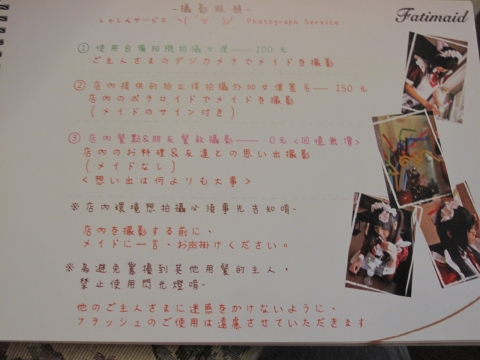 -攝影服務-
しゃしんサービス Photograph Service
Fatimaid
① 使用自備相機拍攝女僕——100元
ご主人さまのデジカメでメイドを撮影
② 店內提供的拍立得拍攝外加女僕簽名——150元
店內のポラロイドでメイドを撮影
(メイドのサイン付き)
③ 店內餐點&朋友聚餐攝影——0元<回憶無價>
店內のお料理&友達との思い出撮影
(メイドなし)
<思い出は何よりも大事>
※店內環境想拍攝必須事先告知唷~
店內を撮影する前に、
メイドに一言、お声掛けください。
※為避免驚擾到其他用餐的主人,
禁止使用閃光燈唷~
他のご主人さまに迷惑をかけないように、
フラッシュのご使用は遠慮させていただきます